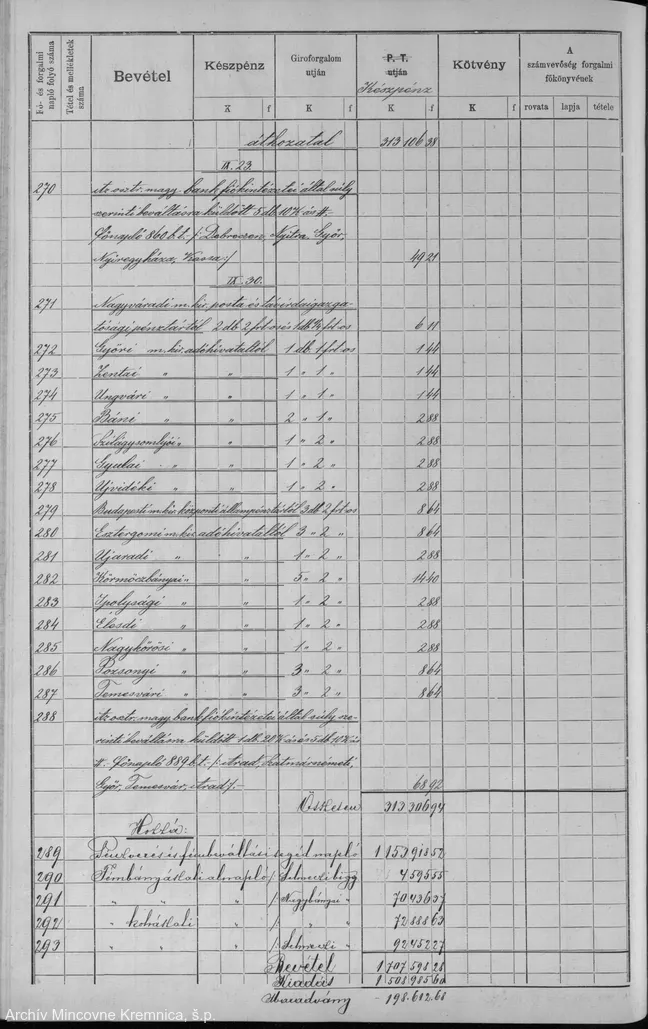 Fő- és forgalmi napló folyó száma
Tétel és mellékletek száma
Bevétel
Készpénz
Giroforgalom utján
P. T. utján
Készpénz
Kötvény
A számvevőség forgalmi főkönyvének
K f K f K f K f rovata lapja tétele
áthozatal 313 106 38
IX. 23.
270 Az osztr. magy. bank fiókintézetei által súly
szerinti beváltásra küldött 5 db 10 K ás #.-
főnapló 860 b. t. -/: Debreczen, Nyitra, Győr,
Nyiregyháza, Kassa :/ 49 21
IX. 30.
271 Nagyváradi m. kir. posta és távirdaigazga-
tósági pénztártól 2 db. 2 frt os és 1 db ¼ frt os 6 11
272 Győri m. kir. adóhivataltól 1 db. 1 frt os 1 44
273 Zentai " " 1 " 1 " 1 44
274 Ungvári " " 1 " 1 " 1 44
275 Báni " " 2 " 1 " 2 88
276 Szilágysomlyói " " 1 " 2 " 2 88
277 Gyulai " " 1 " 2 " 2 88
278 Ujvidéki " " 1 " 2 " 2 88
279 Budapesti m. kir. központi állampénztártól 3 db 2 frt os 8 64
280 Esztergomi m. kir. adóhivataltól 3 " 2 " 8 64
281 Ujaradi " " 1 " 2 " 2 88
282 Körmöczbányai " " 5 " 2 " 14 40
283 Ipolysági " " 1 " 2 " 2 88
284 Élesdi " " 1 " 2 " 2 88
285 Nagykőrösi " " 1 " 2 " 2 88
286 Pozsonyi " " 3 " 2 " 8 64
287 Temesvári " " 3 " 2 " 8 64
288 Az osztr. magy. bank fiókintézetei által súly sze-
rinti beváltásra küldött 1 db. 20 K ás és 5 db 10 K ás
#. főnapló 889 b. t. /: Arad, Szatmárnémeti,
Győr, Temesvár, Arad /.- 68 92
Összesen 313 306 94
Hozzá:
289 Pénzverési és fémbeváltási segéd napló 1 153 918 52
290 Fémbányászati alnapló /: Selmeczi 459 55
291 " " " /: Nagybányai " 704 36
292 " kohászati " /: " " 7288 63
293 " " " /: Selmeczi " 92 452 27
Bevétel 1 707 598 28
Kiadás 1 508 985 60
Maradvány 198.612.68
Archív Mincovne Kremnica, š.p.